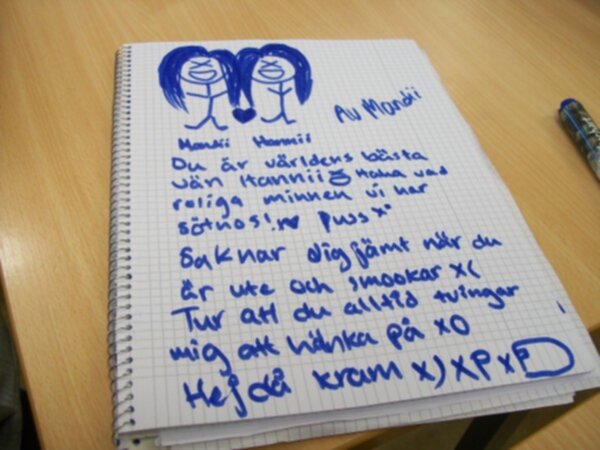 Av Mandii
Mandii Hannii
Du är världens bästa
vän Hannii Haha vad
roliga minnen vi har
sötnos! puss x*
Saknar dig jämt när du
är ute och smookar x(
Tur att du alltid tvingar
mig att hänka på xO
Hejdå kram x) xP xD